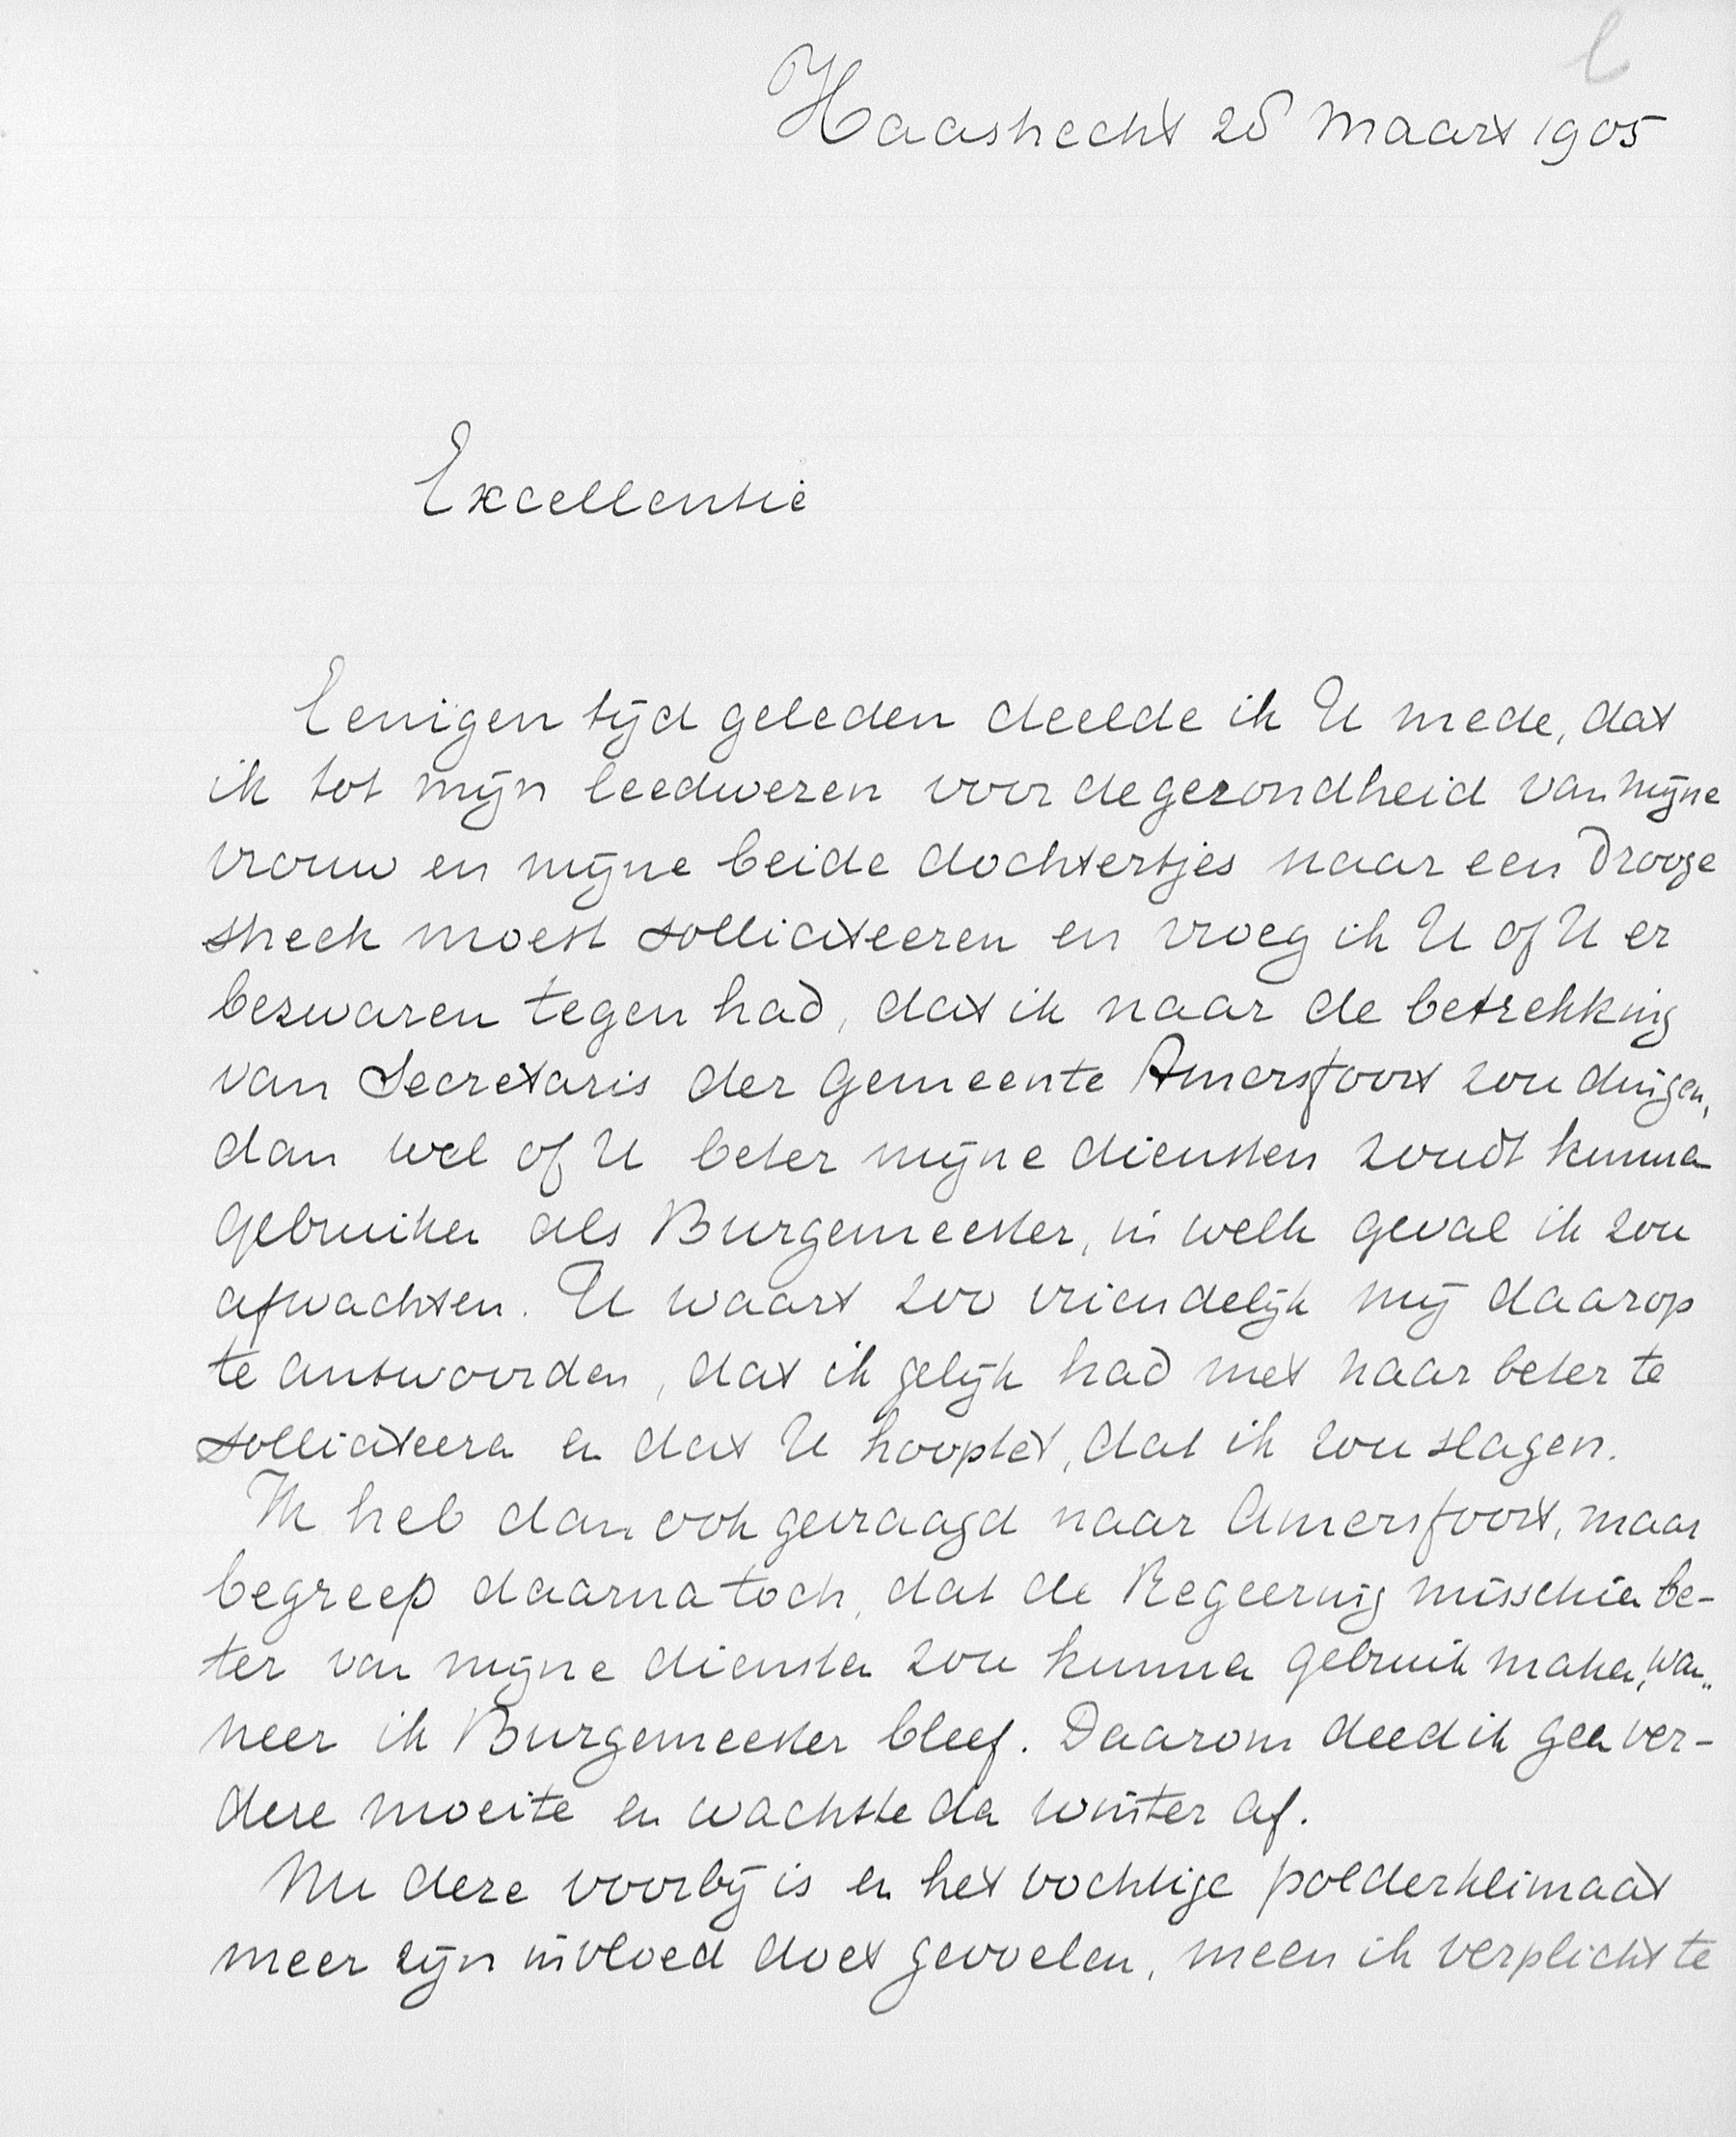 Haastrecht 28 Maart 1905
Excellentie
Eenigen tijd geleden deelde ik U mede, dat
ik tot mijn leedwezen voor de gezondheid van mijne
vrouw en mijne beide dochtertjes naar een drooge
streek moest solliciteeren en vroeg ik U of U er
bezwaren tegen had, dat ik naar de betrekking
van Secretaris der Gemeente Amersfoort zou dingen,
dan wel of U beter mijne diensten zoudt kunnen
gebruiken als Burgemeester, in welk geval ik zou
afwachten. U waart zoo vriendelijk mij daarop
te antwoorden, dat ik gelijk had met naar beter te
solliciteeren en dat U hooptet, dat ik zou slagen.
Ik heb dan ook gevraagd naar Amersfoort, maar
begreep daarna toch, dat de Regeering misschien be-
ter van mijne diensten zou kunnen gebruik maken, wan„
neer ik Burgemeester bleef. Daarom deed ik geen ver-
dere moeite en wachtte den winter af.
Nu deze voorbij is en het vochtige polderklimaat
meer zijn invloed doet gevoelen, meen ik verplicht te